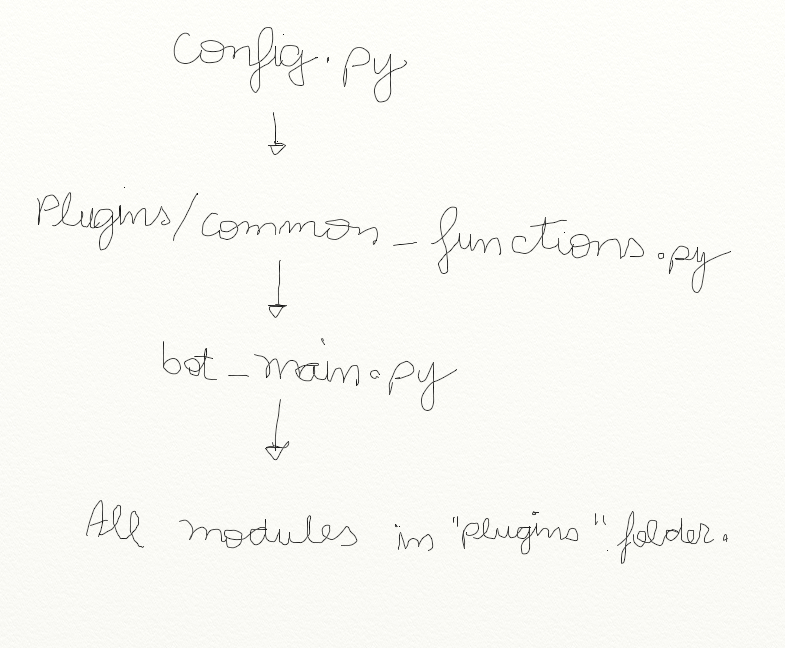 config.py
Plugins/common_functions.py
bot_main.py
All modules in "plugins" folder.